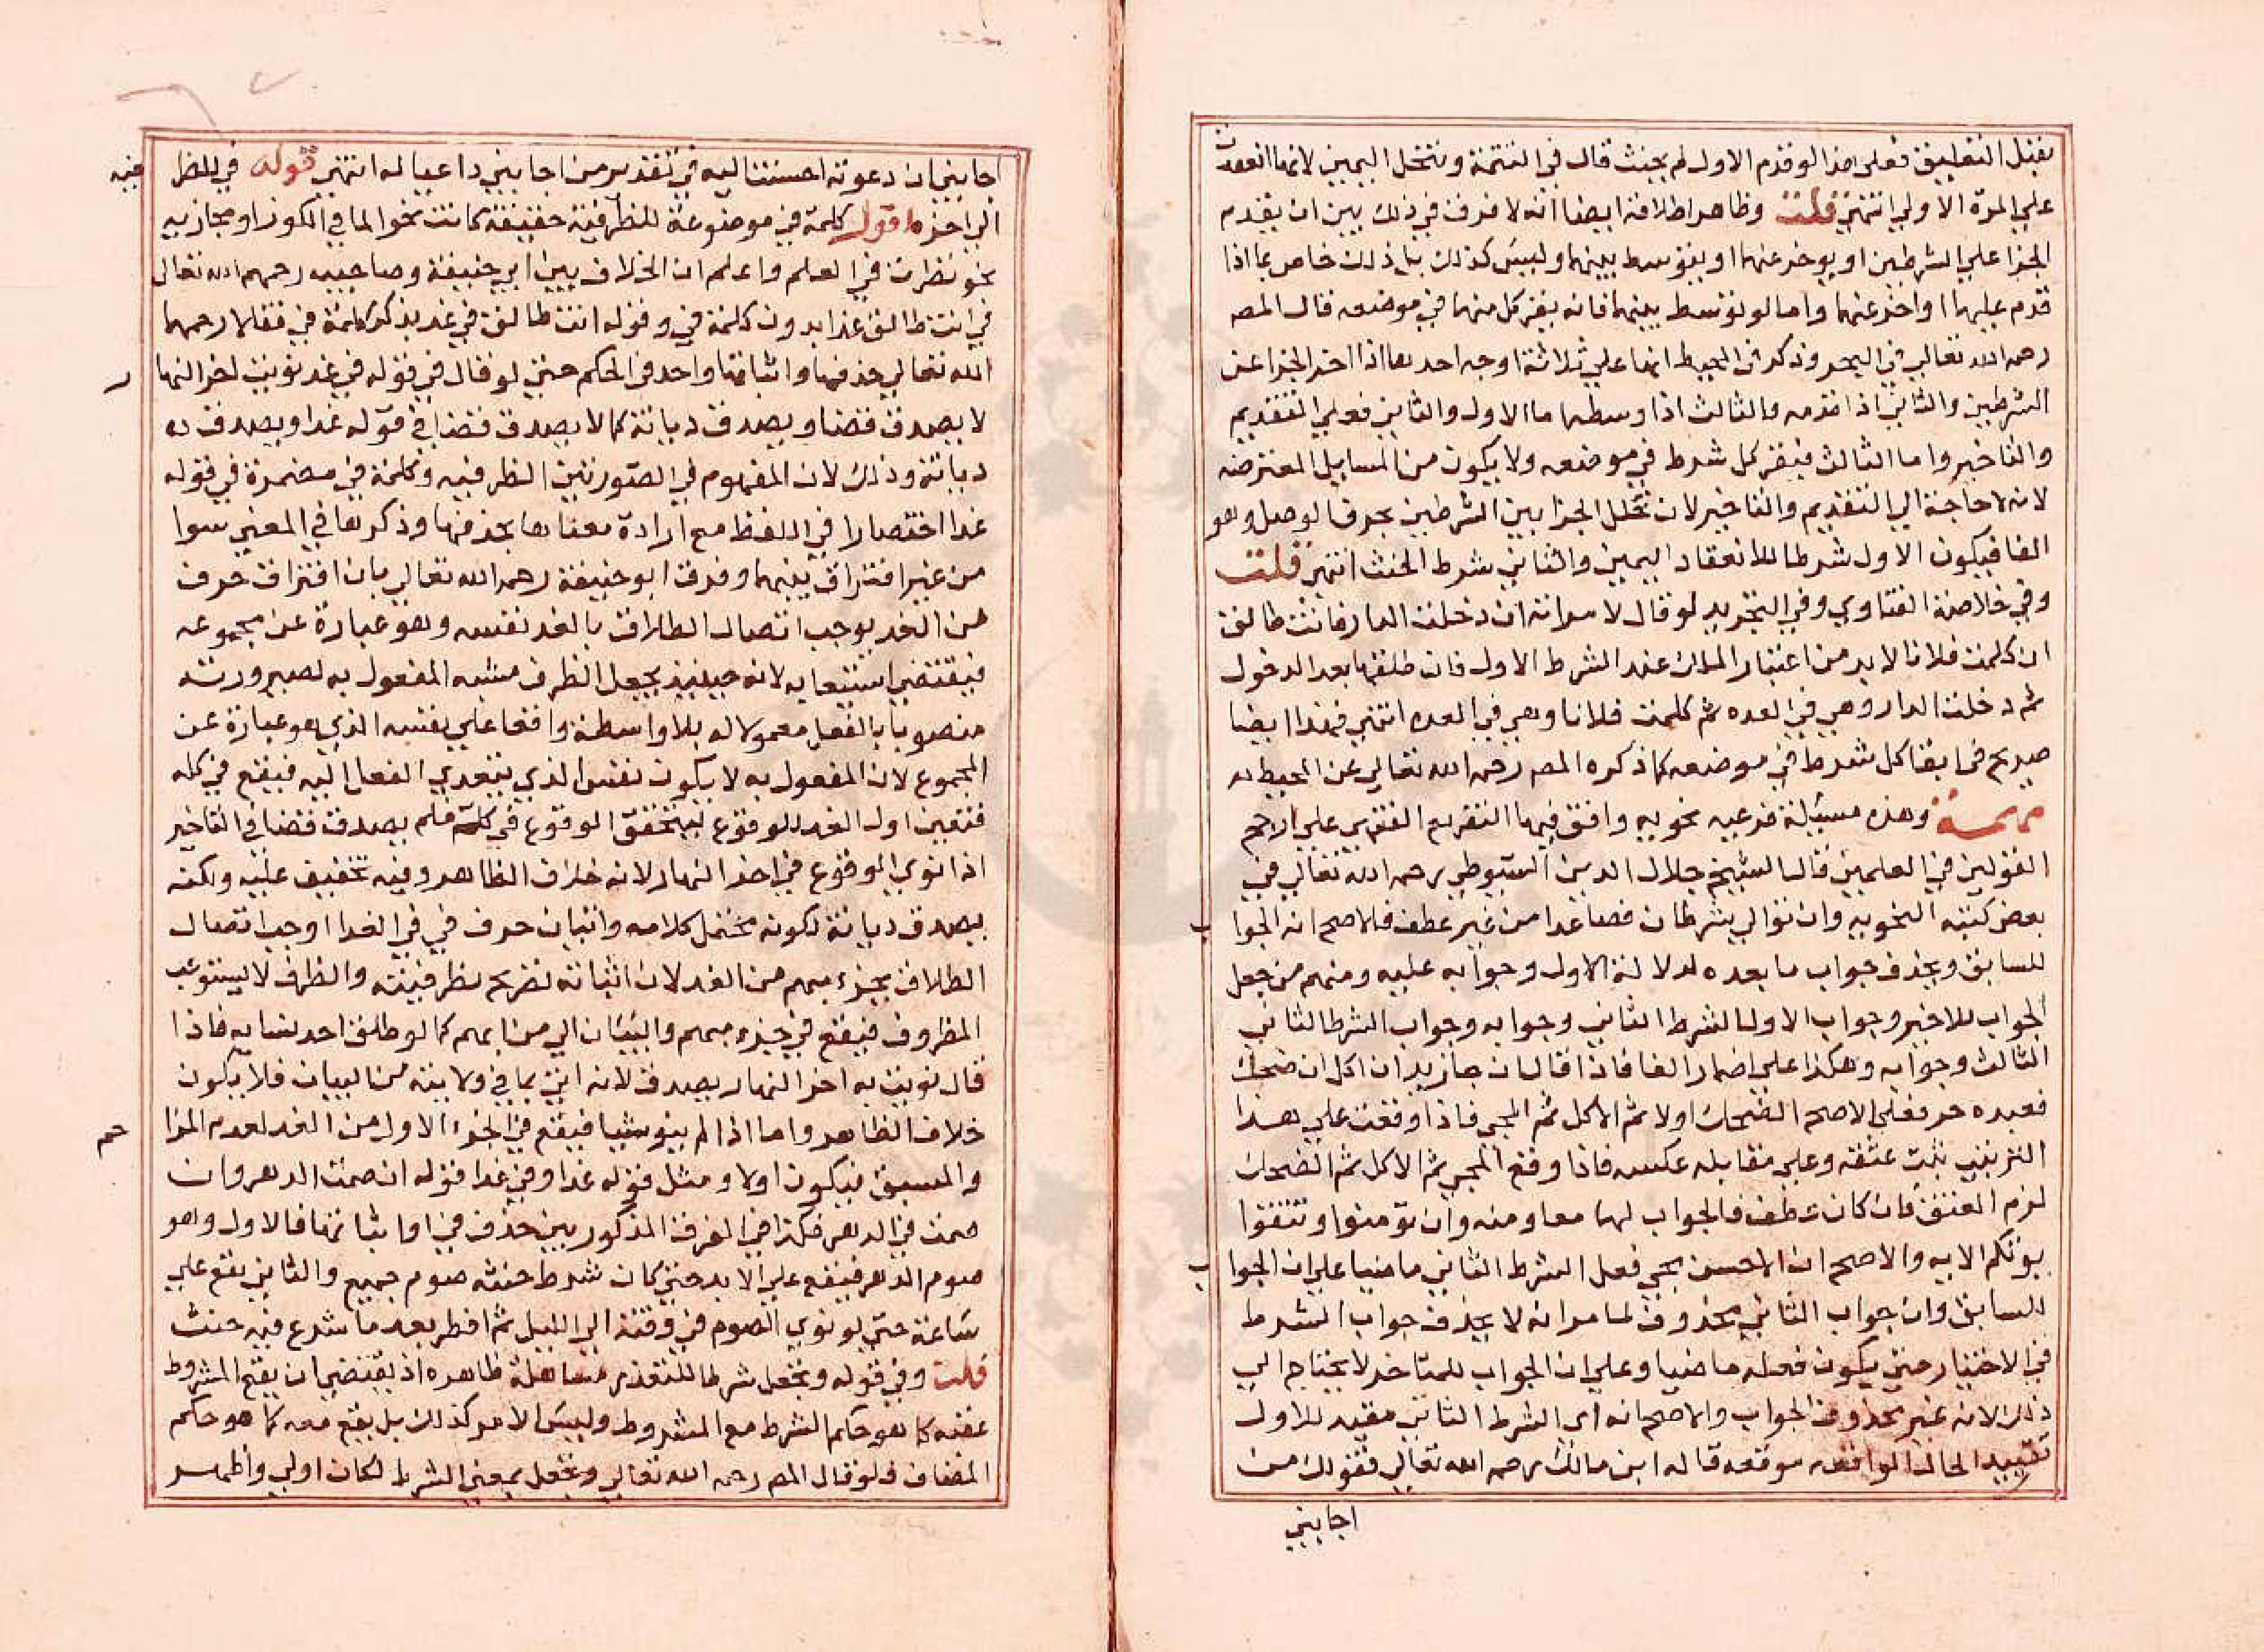 يقبل التعليق فعلى هذا لو قدم الاول لم يحنث قال في التتمة وتنحل اليمين لانها انعقدت
علي المرة الاولي انتهى قلت وظاهر اطلاقه ايضا انه لا فرق في ذلك بين ان يقدم
الجزا علي الشرطين او يوخر عنهما او يتوسط بينهما وليس كذلك بل ذلك خاص بما اذا
قدم عليهما او اخر عنهما واما لو توسط بينهما فانه يقر كل منهما في موضعه قال المصه
رحمه الله تعالي في البحر وذكر في المحيط انها علي ثلاثة اوجه احدها اذا اخر الجزا عن
الشرطين والثاني اذا قدمه والثالث اذا وسطه اما الاول والثاني فعلي التقديم
والتاخير واما الثالث فيقر كل شرط في موضعه ولا يكون من المسايل المعترضه
لانه لا حاجة الي التقديم والتاخير لان تخلل الجزا بين الشرطين بحرف الوصل وهو
الفا فيكون الاول شرطا لانعقاد اليمين والثاني شرط الحنث انتهى قلت
وفي خلاصة الفتاوي وفي التجريد لو قال لامراته ان دخلت الدار فانت طالق
ان كلمت فلانا لا بد من اعتبار الملك عند الشرط الاول فان طلقها بعد الدخول
ثم دخلت الدار وهي في العده ثم كلمت فلانا وهي في العده انتهي فهذا ايضا
صريح في ابقا كل شرط في موضعه كما ذكره المصه رحمه الله تعالي عن المحيط
مهمة وهذه مسئلة فرعيه نحويه وافق فيها التفريع الفقهي علي الارجح
القولين في العلمين قال الشيخ جلال الدين السيوطي رحمه الله تعالي في
بعض كتبه النحويه وان توالي شرطان فصاعدا من غير عطف فالاصح ان الجوا
ب
للسابق ويحذف جواب ما بعده لدلالة الاول وجوابه عليه ومنهم من جعل
الجواب للاخير وجواب الاول الشرط الثاني وجوابه وجواب الشرط الثاني
الثالث وجوابه وهكذا علي اضمار الفا فاذا قال ان جا زيد ان اكل ان ضحك
فعبده حر فعلى الاصح الضحك اولا ثم الاكل ثم المجي فاذا وقعت علي هذا
الترتيب ثبت عتقه وعلي مقابله عكسه فاذا وقع المجي ثم الاكل ثم الضحك
لزم العتق فان كان عطف فالجواب لهما معا ومنه وان تؤمنوا وتتقوا
يؤتكم الايه والاصح ان الاحسن مجي فعل الشرط الثاني ماضيا علي ان الجوا
ب
للسابق وان جواب الثاني محذوف لما مر انه لا يحذف جواب الشرط
في الاختيار حتي يكون فعله ماضيا وعلي ان الجواب للمتاخر لا يحتاج الي
ذلك لانه غير محذوف الجواب والاصح انه اي الشرط الثاني مقيد للاول
تقييد الحال الواقعه موقعه قاله ابن مالك رحمه الله تعالي فقولك من
اجابني
اجابني ان دعوته احسنت اليه في تقدير من اجابني داعيا له انتهي قوله في للظر
فيه
الي اخره اقول كلمة في موضوعة للظرفية حقيقة كانت نحو الما في الكوز او مجازيه
نحو نظرت في العلم واعلم ان الخلاف بين ابي حنيفة وصاحبيه رحمهم الله تعالي
في انت طالق غدا بدون كلمة في وقوله انت طالق في غد بذكر كلمة في فقالا رحمهما
الله تعالي حذفها واثباتها واحد في الحكم حتي لو قال في قوله في غد نويت اخر النها
ر
لا يصدق قضا ويصدق ديانة كما لا يصدق قضا في قوله غدا ويصدق ده
ديانة وذلك لان المفهوم في الصورتين الظرفيه وكلمة في مضمرة في قوله
غدا اختصارا في اللفظ مع ارادة معناها بحذفها وذكرها في المعني سوا
من غير افتراق بينهما وفرق ابو حنيفة رحمه الله تعالي بان افتراق حرف
من الغد يوجب اتصال الطلاق بالغد نفسه وهو عبارة عن مجموعه
فيقتضي استيعابه لانه حينيذ يجعل الظرف مشبه المفعول به لصيرورته
منصوبا بالفعل معمولا له بلا واسطة واقعا علي نفسه الذي هو عبارة عن
المجموع لان المفعول به لا يكون نفس الذي يتعدي الفعل اليه فيقع في كله
فتعين اول الغد للوقوع ليتحقق الوقوع في كله فلم يصدق قضا في التاخير
اذا نوي الوقوع في اخر النهار لانه خلاف الظاهر وفيه تخفيف عليه ولكنه
يصدق ديانة لكونه محتمل كلامه واتيان حرف في في الغد اوجب اتصال
الطلاق بجزء مبهم من الغد لان اثباته تصريح بظرفيته والظرف لا يستوعب
المظروف فيقع في جزء مبهم والبيان الي من ابهم كما لو طلق احد نسايه فاذا
قال نويت به اخر النهار يصدق لانه اتي بما في ولايته من البيان فلا يكون
خلاف الظاهر واما اذا لم ينو شيا فيقع في الجزء الاول من الغد لعدم المزا
حم
والمسبق فيكون اولا ومثل قوله غدا وفي غدا قوله ان صمت الدهر وان
صمت في الدهر فكذا في الفرق المذكور بين حذف في او اثباتها فالاول وهو
صوم الدهر فيقع علي الابد حتي كان شرط حنثه صوم جميع والثاني يقع علي
ساعة حتي لو نوي الصوم في وقته الي الليل ثم افطر بعد ما شرع فيه حنث
قلت وفي قوله وتجعل شرطا للتقدير مساهلة ظاهره اذ يقتضي ان يقع المشروط
عقبه كما هو حكم الشرط مع المشروط وليس الامر كذلك بل يقع معه كما هو حكم
المضاف فلو قال المصه رحمه الله تعالي وتجعل بمعني الشرط لكان اولي واظهر